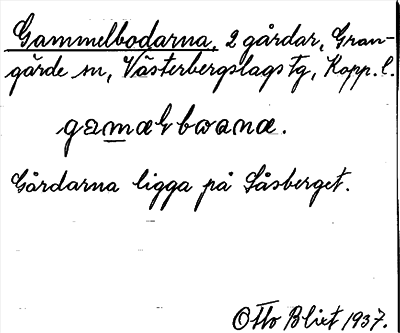 Gammelbodarna, 2 gårdar, Gran-
gärde sn, Västerbergslags tg, Kopp. l.
Gårdarna ligga på Såsberget.
Otto Blixt 1937.